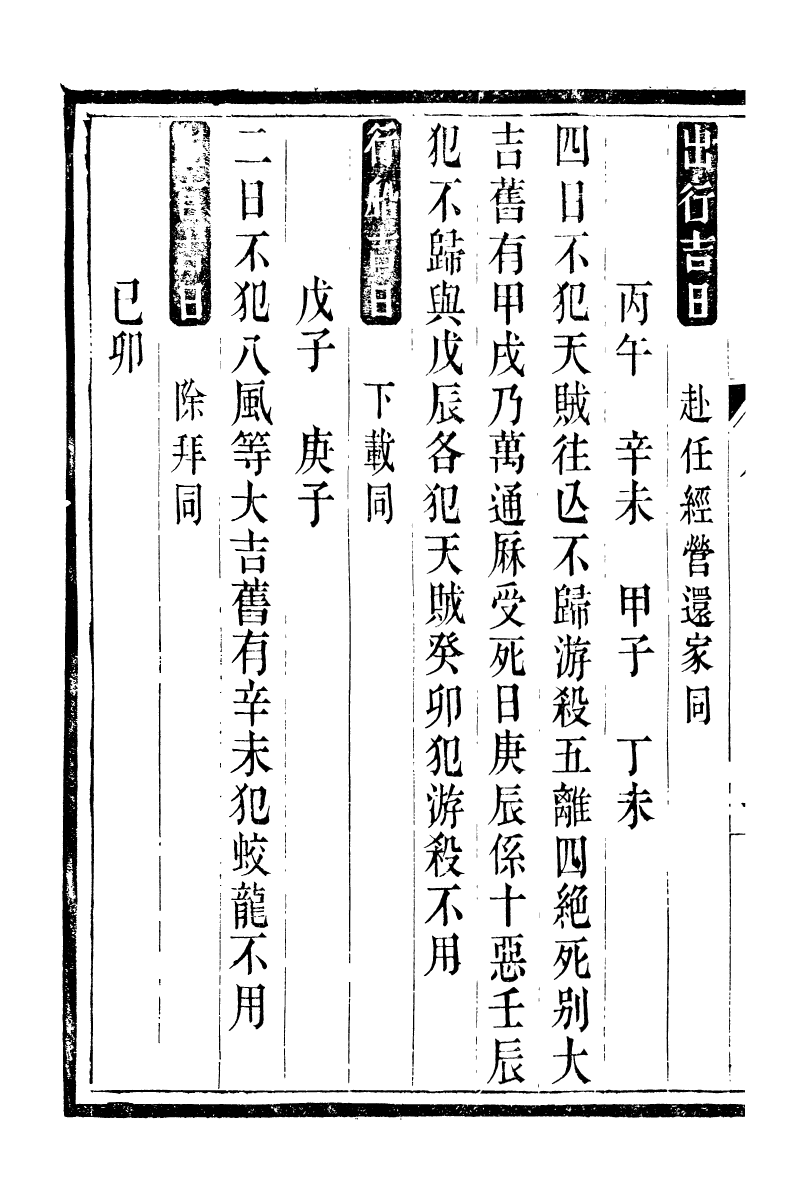 出行吉日　赴任經營還家同
丙午　辛未　甲子　丁未
四日不犯天賊往亾不歸游殺五離四絶死别大
吉舊有甲戌乃萬通厤受死日庚辰係十惡壬辰
犯不歸與戊辰各犯天賊癸卯犯游殺不用
行船吉日　下載同
戊子　庚子
二日不犯八風等大吉舊有辛未犯蛟龍不用
官吉日　除拜同
己卯